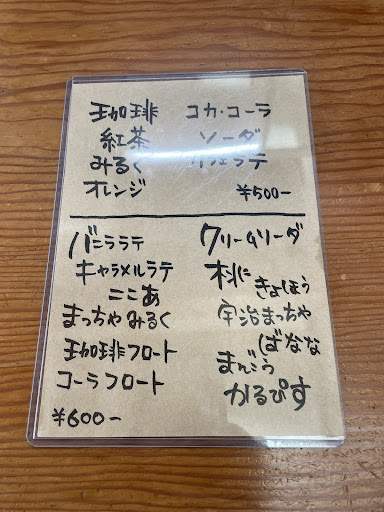 珈琲 コカ・コーラ
紅茶 ソーダ
みるく カフェラテ
オレンジ ¥500-
バニララテ クリームソーダ
キャラメルラテ 桃に
きょほう
ここあ 宇治まっちゃ
まっちゃみるく ばなな
珈琲フロート まんごう
コーラフロート かるぴす
¥600-